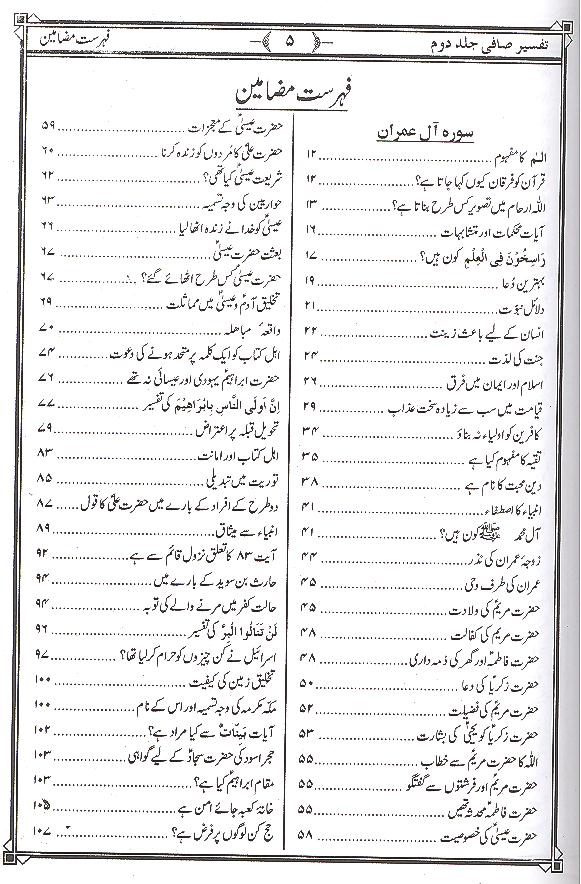 تفسیر صافی جلد دوم ﴿۵﴾ فہرست مضامین
فہرست مضامین
سورہ آل عمران
الٓمّ کا مفہوم ۱۲
قرآن کو فرقان کیوں کہا جاتا ہے؟ ۱۲
اللہ ارحام میں تصویر کس طرح بناتا ہے؟ ۱۳
آیات محکمات اور متشابہات ۱۶
رَاسِخُوْنَ فِی الْعِلْمِ کون ہیں؟ ۱۷
بہترین دُعا ۱۹
دلائل نبوّت ۲۱
انسان کے لیے باعث زینت ۲۲
جنت کی لذت ۲۴
اسلام اور ایمان میں فرق ۲۶
قیامت میں سب سے زیادہ سخت عذاب ۲۹
کافرین کو اولیاء نہ بناؤ ۳۴
تقیہ کا مفہوم کیا ہے ۳۵
دین محبت کا نام ہے ۳۸
انبیاء کا اصطفاء ۴۱
آل محمد ﷺ کون ہیں؟ ۴۱
زوجۂ عمران کی نذر ۴۴
عمران کی طرف وحی ۴۵
حضرت مریمؑ کی ولادت ۴۵
حضرت مریمؑ کی کفالت ۴۸
حضرت فاطمہؑ اور گھر کی ذمہ داری ۴۸
حضرت زکریاؑ کی دعا ۵۰
حضرت مریمؑ کی فضیلت ۵۲
حضرت زکریاؑ کو یحییٰؑ کی بشارت ۵۳
اللہ کا حضرت مریمؑ سے خطاب ۵۵
حضرت مریمؑ اور فرشتوں سے گفتگو ۵۵
حضرت فاطمہؑ محدثہ تھیں ۵۵
حضرت عیسیٰؑ کی خصوصیت ۵۸
حضرت عیسیٰؑ کے معجزات ۵۹
حضرت علیؑ کا مُردوں کو زندہ کرنا ۶۰
شریعت عیسیٰؑ کیا تھی؟ ۶۲
حواریین کی وجہ تسمیہ ۶۳
عیسیٰؑ کو خدا نے زندہ اٹھا لیا ۶۶
بعثت حضرت عیسیٰؑ ۶۷
حضرت عیسیٰؑ کس طرح اٹھائے گئے؟ ۶۷
تخلیق آدمؑ و عیسیٰؑ میں مماثلت ۶۹
واقعۂ مباھلہ ۷۰
اہل کتاب کو ایک کلمہ پر متحد ہونے کی دعوت ۷۴
حضرت ابراہیمؑ یہودی اور عیسائی نہ تھے ۷۶
اِنَّ اَوْلَی النَّاسِ بِاِبْرَاهِیْمَ کی تفسیر ۷۷
تحویل قبلہ پر اعتراض ۷۹
اہل کتاب اور امانت ۸۳
توریت میں تبدیلی ۸۵
دو طرح کے افراد کے بارے میں حضرت علیؑ کا قول ۸۷
انبیاء سے میثاق ۸۹
آیت ۸۳ کا تعلق نزول قائم سے ہے ۹۲
حارث بن سوید کے بارے میں ۹۴
حالت کفر میں مرنے والے کی توبہ ۹۴
لَنْ تَنَالُوا الْبِرَّ کی تفسیر ۹۶
اسرائیل نے کن چیزوں کو حرام کر لیا تھا؟ ۹۷
تخلیق زمین کی کیفیت ۱۰۰
مکہ مکرمہ کی وجہ تسمیہ اور اس کے نام ۱۰۰
آیات بَیِّنَات سے کیا مراد ہے؟ ۱۰۲
حجر اسود کی حضرت سجادؑ کے لیے گواہی ۱۰۳
مقام ابراہیمؑ کیا ہے؟ ۱۰۳
خانۂ کعبہ جائے امن ہے ۱۰۵
حج کن لوگوں پر فرض ہے؟ ۱۰۷